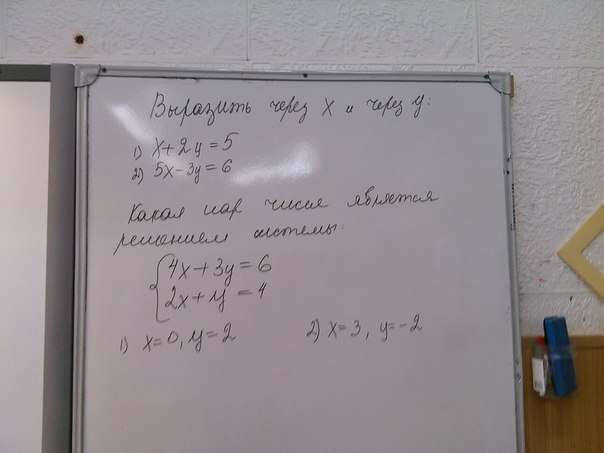 Выразить через X и через y:
1) x+2y=5
2) 5x-3y=6
Какая пар чисел является
решением системы:
{4x+3y=6
2x+y=4
1) x=0, y=2
2) x=3, y=-2